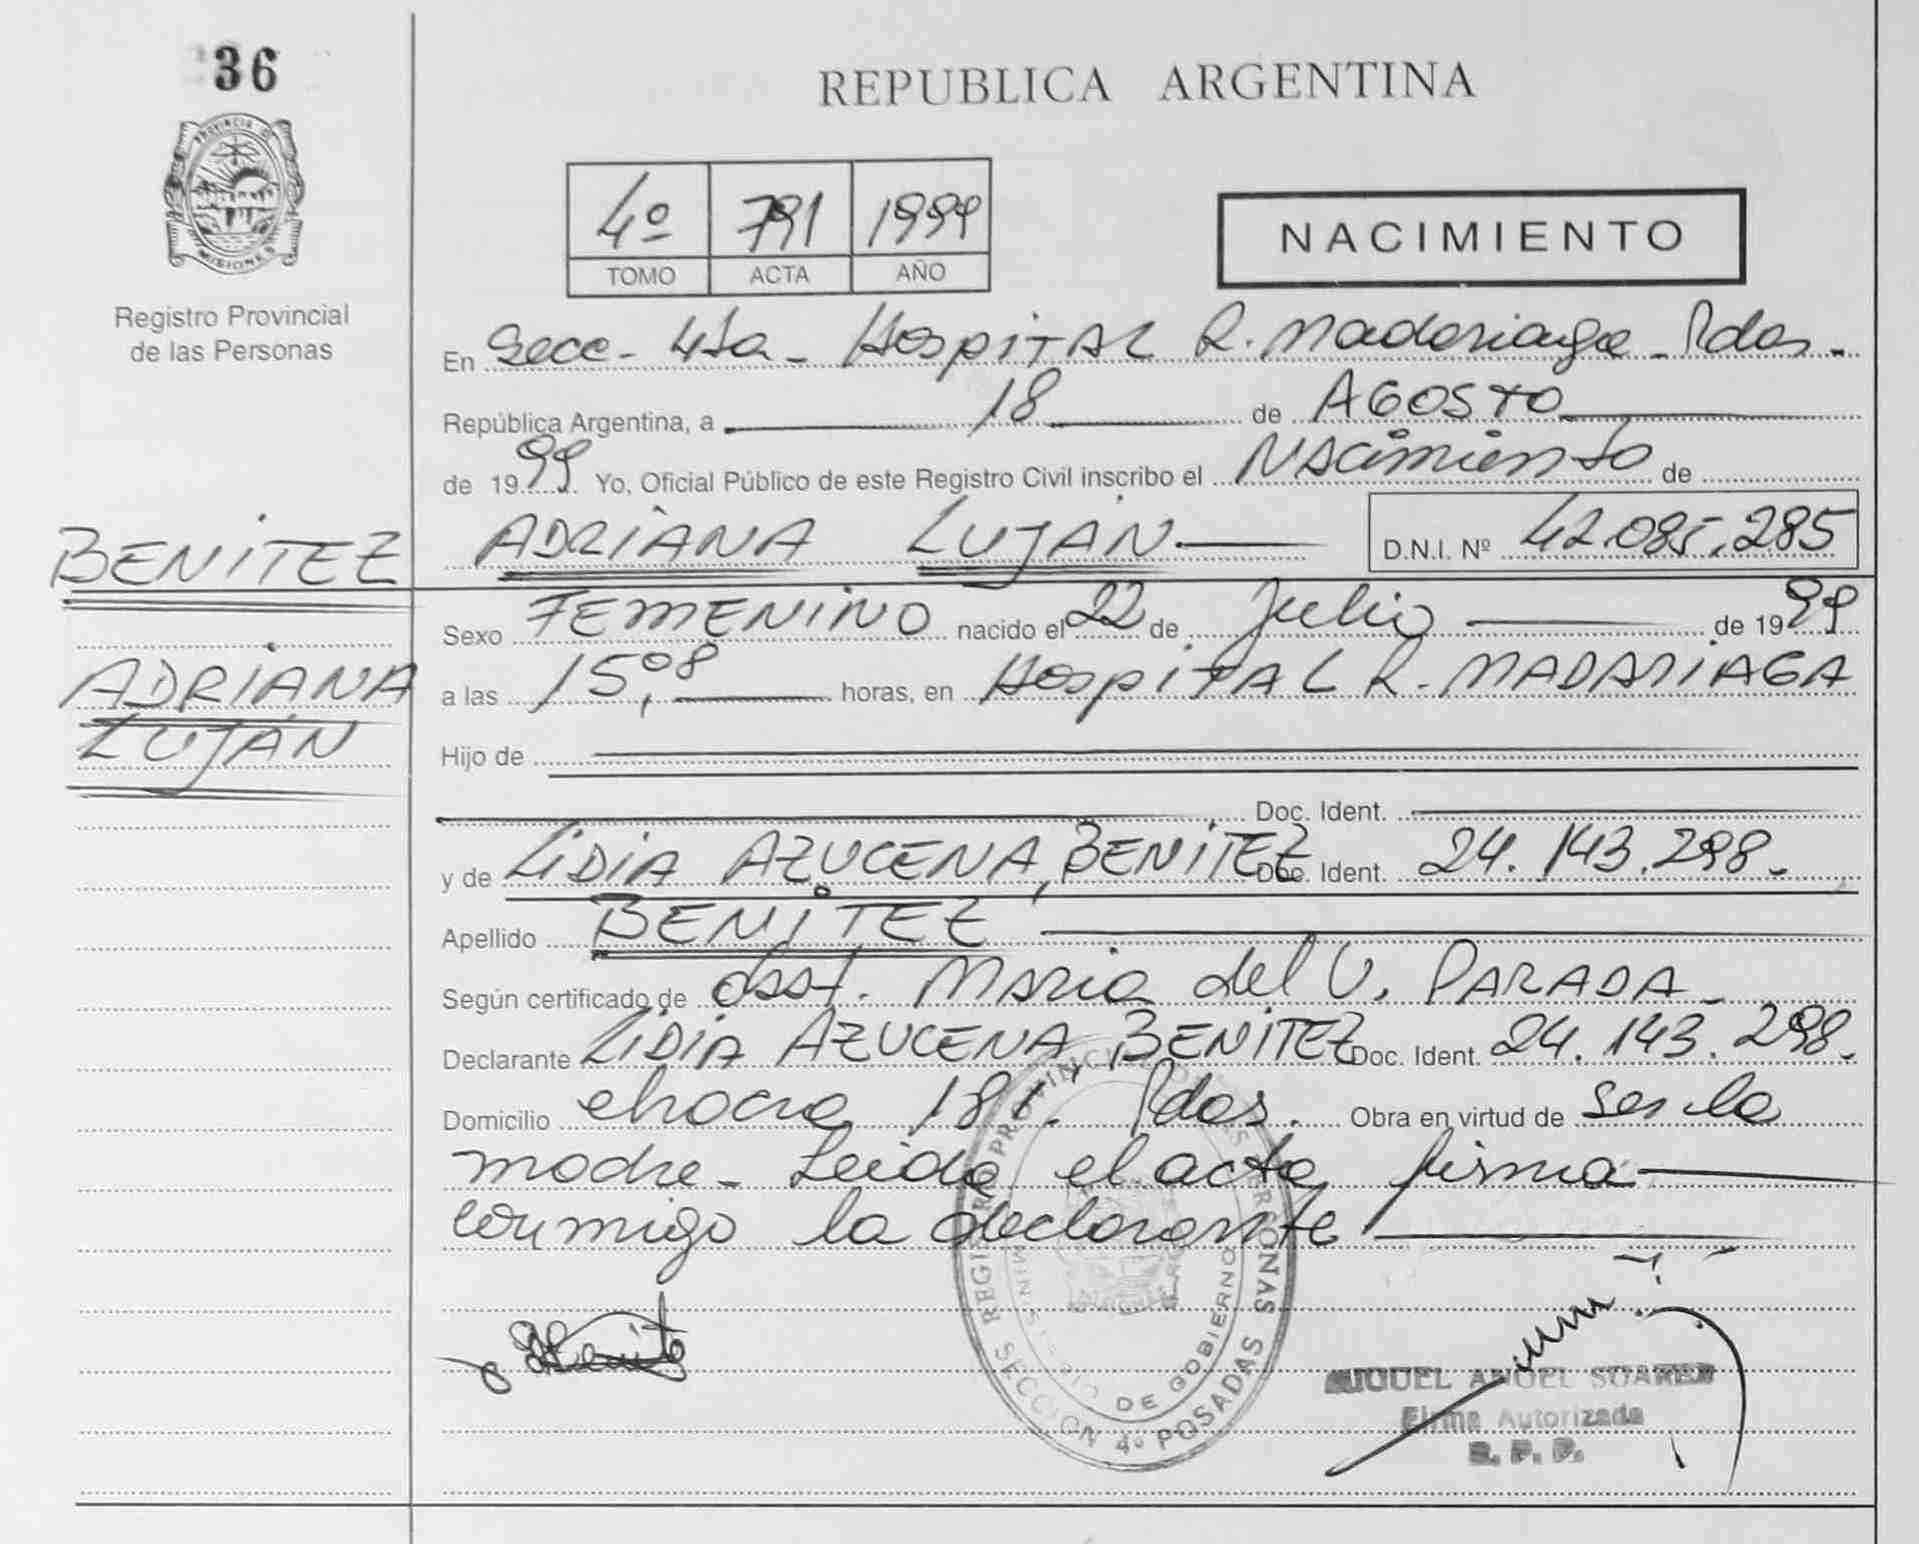 36
PROVINCIA DE
MISIONES
Registro Provincial
de las Personas
REPUBLICA ARGENTINA
4º 791 1999
TOMO ACTA AÑO
NACIMIENTO
En Secc. 4ta. Hospital R. Madariaga - Pdas.
República Argentina, a 18 de AGOSTO
de 1999 Yo, Oficial Público de este Registro Civil inscribo el Nacimiento de
BENITEZ
ADRIANA LUJÁN D.N.I. Nº 42.085.285
Sexo FEMENINO nacido el 22 de Julio de 1999
ADRIANA
LUJÁN
a las 15,08 horas, en Hospital R. MADARIAGA
Hijo de
Doc. Ident.
y de LIDIA AZUCENA, BENITEZ Doc. Ident. 24.143.298.
Apellido BENITEZ
Según certificado de Obst. Maria del V. PARADA
Declarante LIDIA AZUCENA, BENITEZ Doc. Ident. 24.143.298.
Domicilio chacra 181. Pdas. Obra en virtud de ser la
madre. Leida el acta firma
conmigo la declarante
REGISTRO PROVINCIAL DE LAS PERSONAS
MINISTERIO DE GOBIERNO
SECCION 4º POSADAS
MIGUEL ANGEL SUAREZ
Firma Autorizada
R. P. P.